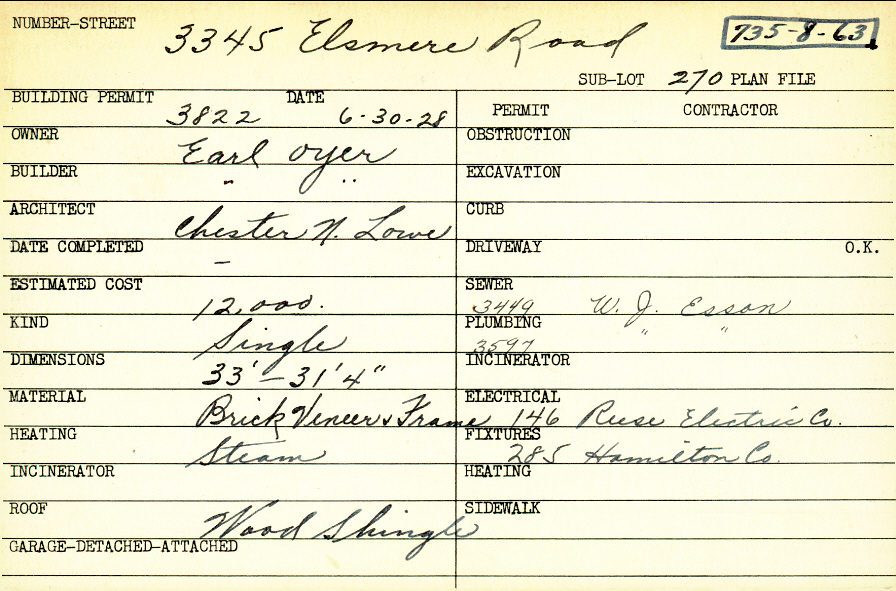 NUMBER-STREET 3345 Elsmere Road 735-8-63
SUB-LOT 270 PLAN FILE
BUILDING PERMIT 3822 DATE 6-30-28
PERMIT CONTRACTOR
OWNER Earl Oyer
OBSTRUCTION
BUILDER " "
EXCAVATION
ARCHITECT Chester N. Lowe
CURB
DATE COMPLETED –
DRIVEWAY O.K.
ESTIMATED COST 12,000.
SEWER 3449 W. J. Esson
KIND Single
PLUMBING 3597 " "
DIMENSIONS 33' – 31' 4"
INCINERATOR
MATERIAL Brick Veneer & Frame
ELECTRICAL 146 Reese Electric Co.
HEATING Steam
FIXTURES 285 Hamilton Co.
INCINERATOR
HEATING
ROOF Wood Shingle
SIDEWALK
GARAGE-DETACHED-ATTACHED